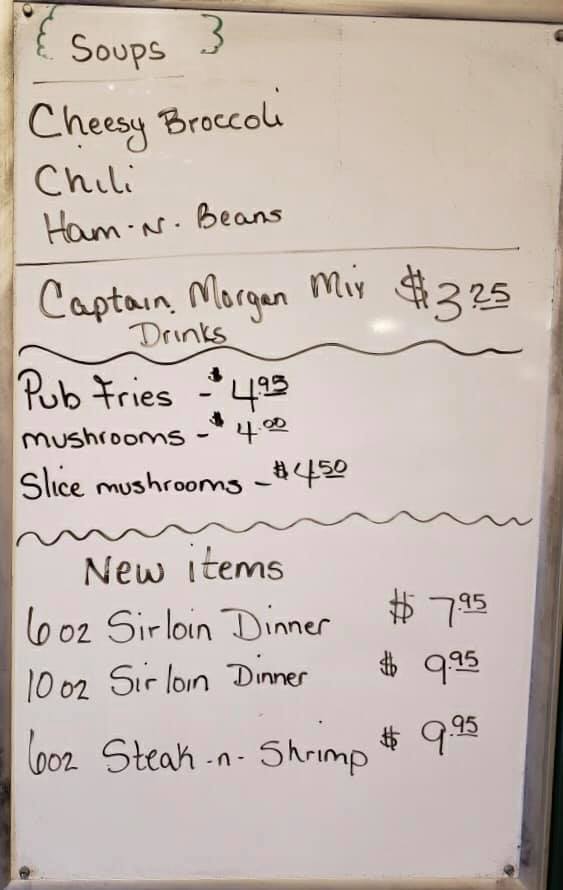 Soups
Cheesy Broccoli
Chili
Ham-N. Beans
Captain Morgan Mix $3.25
Drinks
Pub Fries - $4.95
mushrooms - $4.00
Slice mushrooms - $4.50
New items
6 oz Sirloin Dinner $7.95
10 oz Sirloin Dinner $9.95
6oz Steak-n-Shrimp $9.95